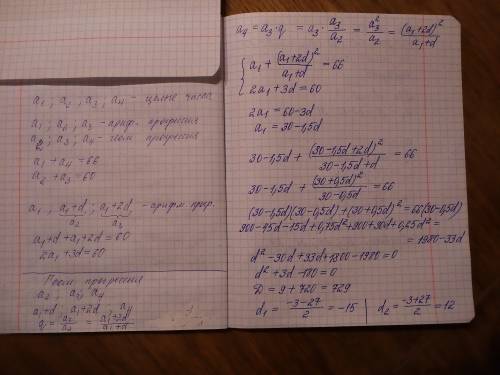 a₁ ; a₂ ; a₃ ; a₄ - целые числа
a₁ ; a₂ ; a₃ - ариф. прогрессия
a₂ ; a₃ ; a₄ - геом прогрессия
a₁ + a₄ = 66
a₂ + a₃ = 60
a₁ ; a₁+d ; a₁+2d - арифм. прогр.
a₂ a₃
a₁+d+a₁+2d=60
2a₁+3d=60
Геом прогрессия
a₂ ; a₃ ; a₄
a₁+d ; a₁+2d ; a₄
q = a₃/a₂ = (a₁+2d)/(a₁+d)
a₄ = a₃·q = a₃ · a₃/a₂ = a₃²/a₂ = (a₁+2d)²/(a₁+d)
{ a₁ + (a₁+2d)²/(a₁+d) = 66
2a₁ + 3d = 60
2a₁ = 60-3d
a₁ = 30-1,5d
30-1,5d + (30-1,5d+2d)²/(30-1,5d+d) = 66
30-1,5d + (30+0,5d)²/(30-0,5d) = 66
(30-1,5d)(30-0,5d)+(30+0,5d)² = 66(30-0,5d)
900-45d-15d+0,75d²+900+30d+0,25d² =
= 1980-33d
d²-30d+33d+1800-1980=0
d²+3d-180=0
D = 9+720 = 729
d₁ = (-3-27)/2 = -15 | d₂ = (-3+27)/2 = 12